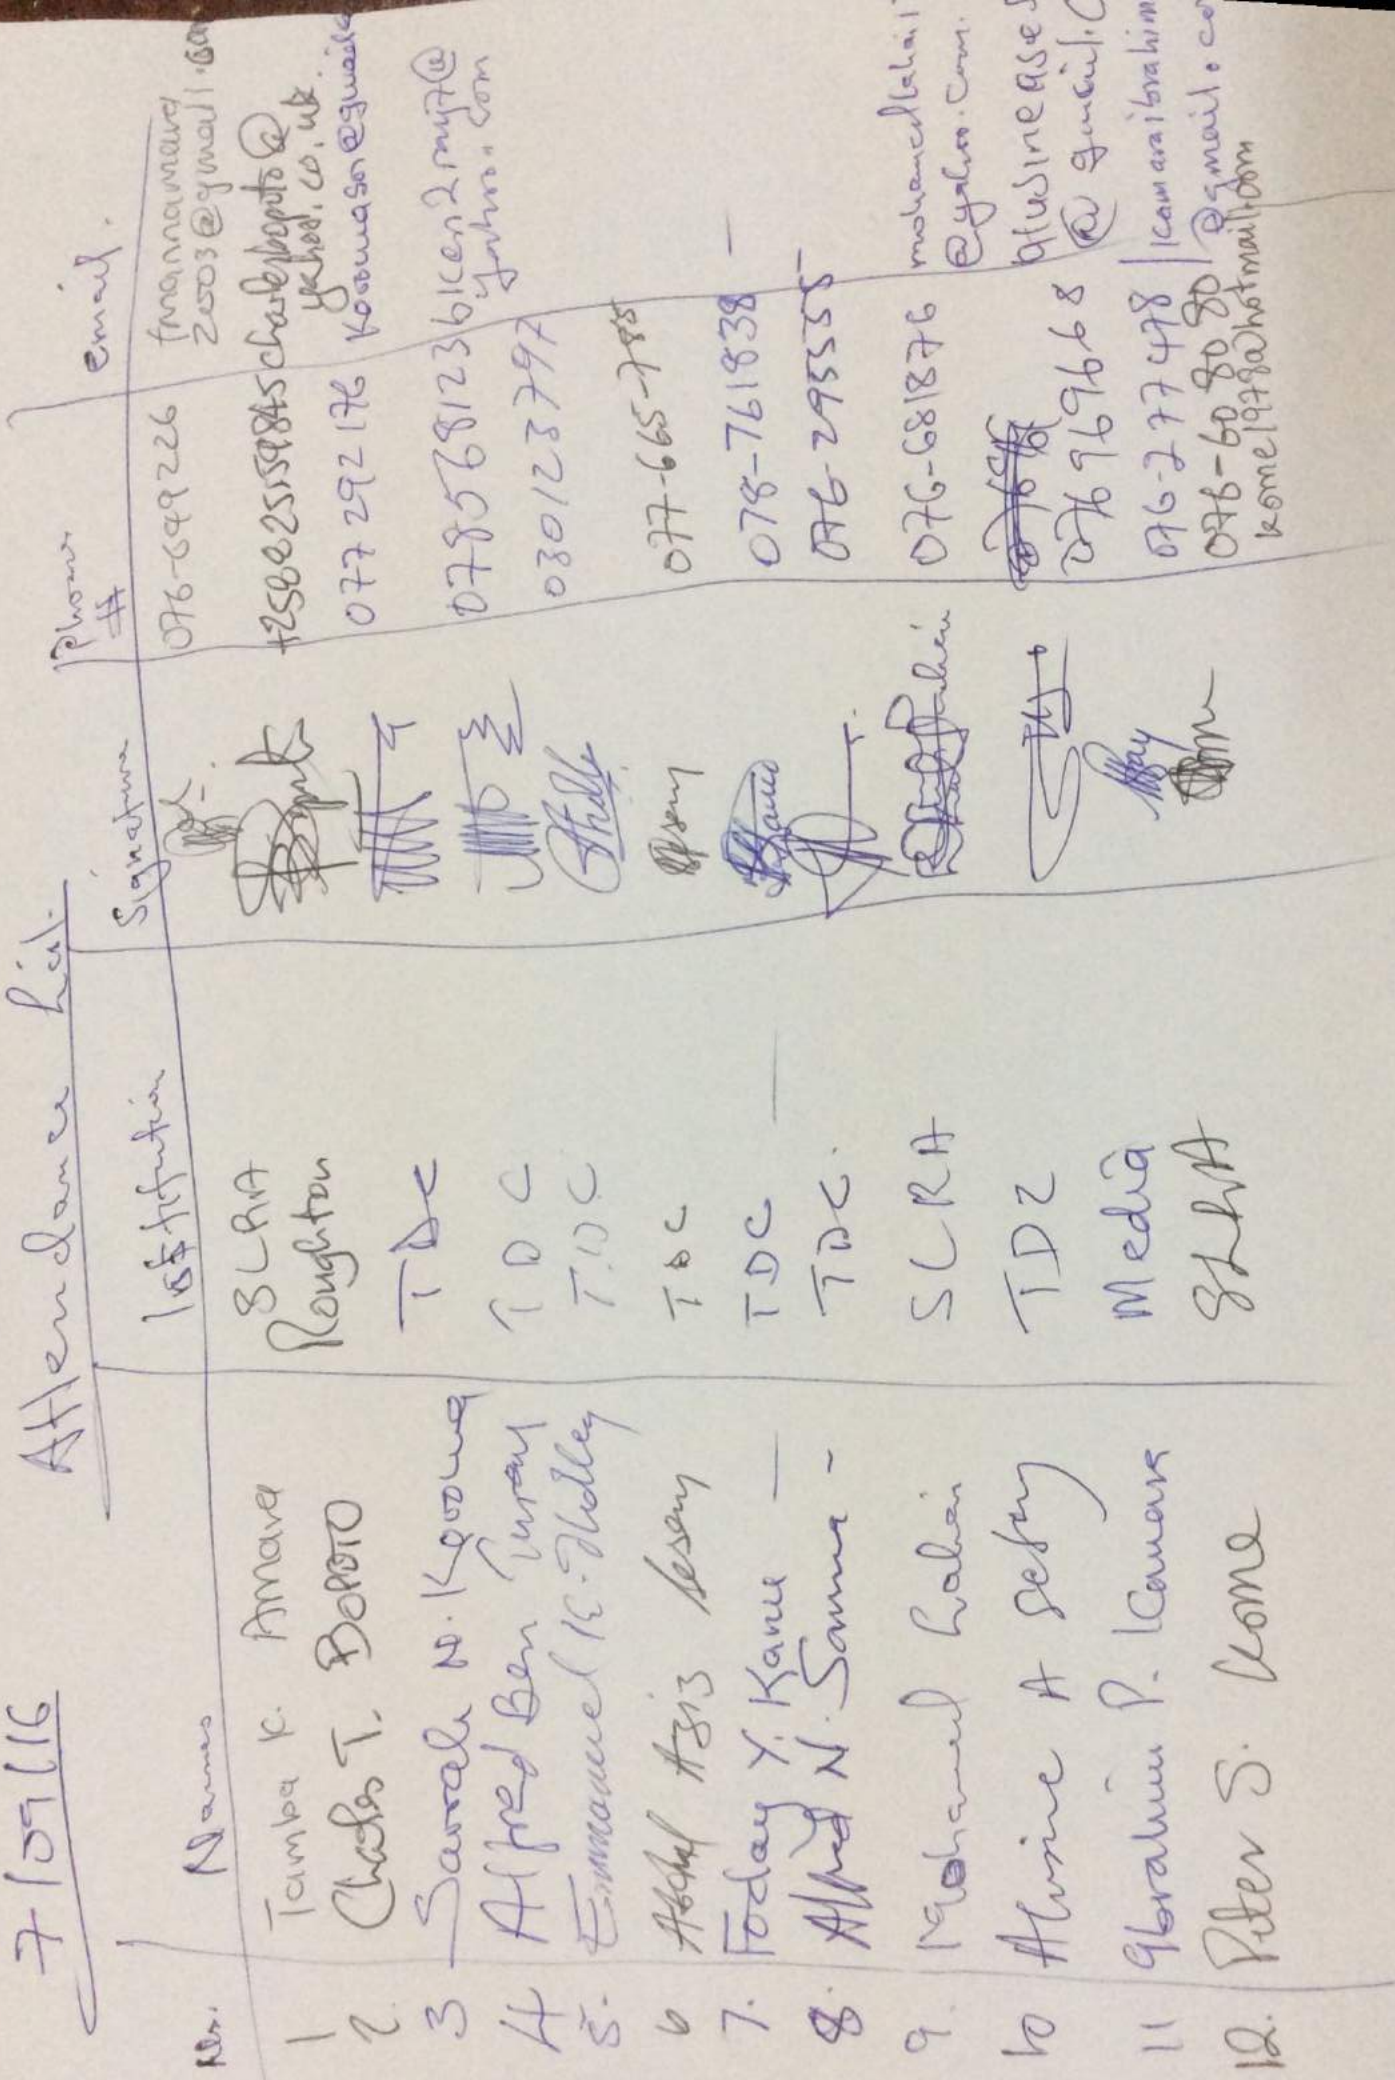 7/09/16
Attendance List.
No. Names Institution Signature Phone # email.
1 Tamba K. Amara SLRA 076-649226
2003@gmail.com
2. Charles T. BOPOTO Roughton +258825159845 charlesbopoto@
yahoo.co.uk
3 Sarrah N. Koroma TDC 077 292 176
4 Alfred Ben Turay TDC 078568123 bken2my7@
yahoo.com
5. Emmanuel K. TDC 030123797
6 Abdul Aziz Sesay TDC 077-665-785
7. Foday Y. Kanu — TDC — 078-761838 —
8. Alfred N. Samura - TDC. 076-295555 -
9. Mohamed Lahai SLRA 076-681876 mohamedlahai1
@yahoo.com.
10 Alusine A Sesay TDC 076969668 alusineases
@gmail.c
11 Ibrahim P. Kamara Media 076-277478 kamaraibrahim
@gmail.co
12. Peter S. Kome SLRA 076-60 80 80
kome1978@hotmail.com